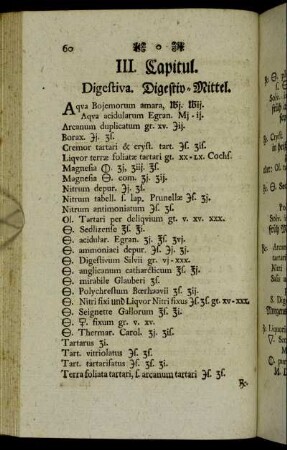 60
III. Capitul.
Digestiva. Digestiv-Mittel.
Aqva Bojemorum amara, ℔j. ℔ij.
Aqva acidularum Egran. Mj - ij.
Arcanum duplicatum gr. xv. ℈ij.
Borax. ℈j. ʒſ.
Cremor tartari & cryst. tart. ℈ſ. ʒiſ.
Liqvor terræ foliatæ tartari gt. xx-Lx. Cochſ.
Magnesia 🜕 ʒj, ʒiij. ʒſ.
Magnesia 🜔. com. ʒj. ʒij.
Nitrum depur. ℈j. ʒſ.
Nitrum tabell. ſ. lap. Prunellæ ℈ſ. ʒj.
Nitrum antimoniatum ℈ſ. ʒſ.
Ol. Tartari per deliqvium gt. v. xv. xxx.
🜔. Sedlizense ℥ſ. ℥j.
🜔. acidular. Egran. ʒj. ʒſ. ʒvj.
🜔. ammoniaci depur. ℈ſ. ʒj.
🜔. Digestivum Silvii gr. vj-xxx.
🜔. anglicanum catharcticum ʒſ. ℥j.
🜔. mirabile Glauberi ʒſ.
🜔. Polychrestum Bœrhaavii ʒſ. ʒij.
🜔. Nitri fixi und Liqvor Nitri fixus ℈ſ. ʒſ. gt. xv-xxx.
🜔. Seignette Gallorum ʒſ. ʒj.
🜔. ♀. fixum gr. v. xv.
🜔. Thermar. Carol. ʒj. ʒiſ.
Tartarus ʒj.
Tart. vitriolatus ℈ſ. ʒſ.
Tart. tartarisatus ℈ſ. ʒſ.
Terra foliata tartari, ſ. arcanum tartari ℈ſ. ʒj.